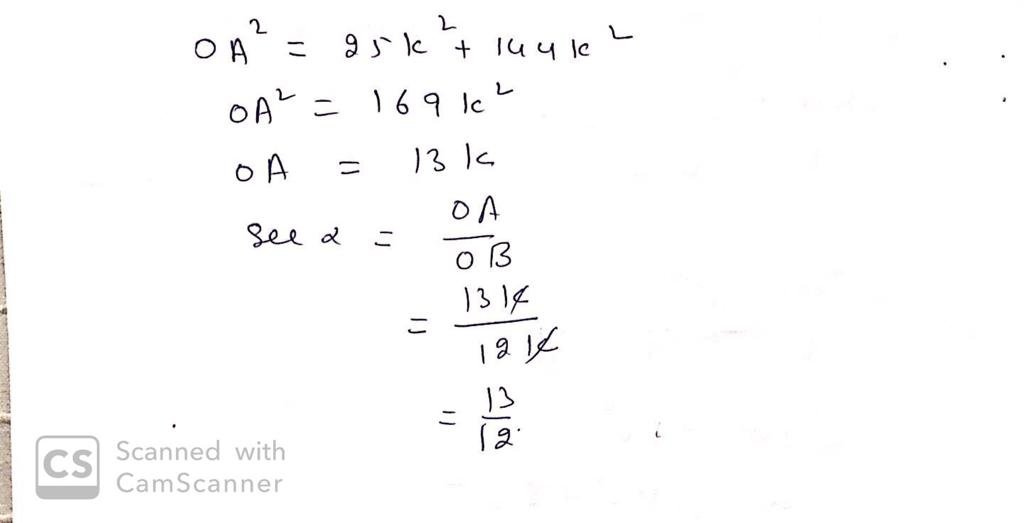 OA² = 25k² + 144k²
OA² = 169k²
OA = 13k
sec α = OA/OB
= 13k/12k
= 13/12.
CS Scanned with
CamScanner